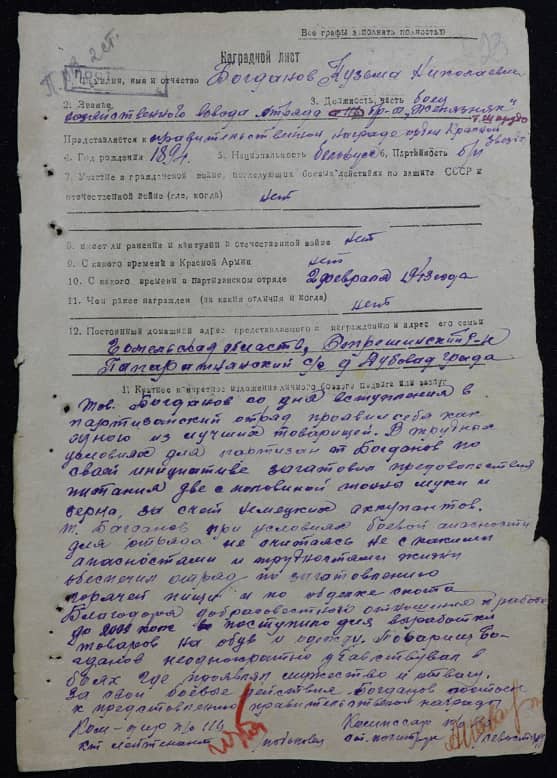 Все графы заполнять полностью
23
Наградной лист
Фамилия, имя и отчество Богданов Кузьма Николаевич
2. Звание 3. Должность, часть боец
хозяйственного взвода отряда
Представляется к правительственной награде орден Красной
Звезды
4. Год рождения 5. Национальность белорус 6. Партийность б/п
7. Участие в гражданской войне, последующих боевых действиях по защите СССР и
отечественной войне (где, когда) нет
8. имеет ли ранения и контузии в отечественной войне нет
9. С какого времени в Красной Армии нет
10. С какого времени в Партизанском отряде 2 февраля 1943 года
11. Чем ранее награжден (за какия отличия и когда) нет
12. Постоянный домашний адрес представляемого к награждению и адрес его семьи
Гомельская область,
с/с д
1. Краткое и конкретное изложение личного боевого подвига или заслуг
тов. Богданов со дня вступления в
партизанский отряд проявил себя как
одного из лучших товарищей. В трудных
условиях для партизан т Богданов по
своей инициативе заготовил продовольствия
питания две с половиной тонны муки и
зерна, за счет немецких аккупантов.
т. Богданов при условиях боевой опасности
для отряда не считаясь не с какими
опасностями и трудностями жизни
обеспечил отряд по заготовлению
горячей пищи и по
Благодоря добрасовестного отношения к работе
до 2000 кож поступило для выработки
товаров на обув и одежду. Товарищ Бо-
гданов неоднократно участвувал в
боях где проявлял мужество и отвагу.
За свои боевые действия Богданов достоен
к предствлению правительственной награды
Ком-дир п/о Комиссар
ст. лейтенант ст. политрук